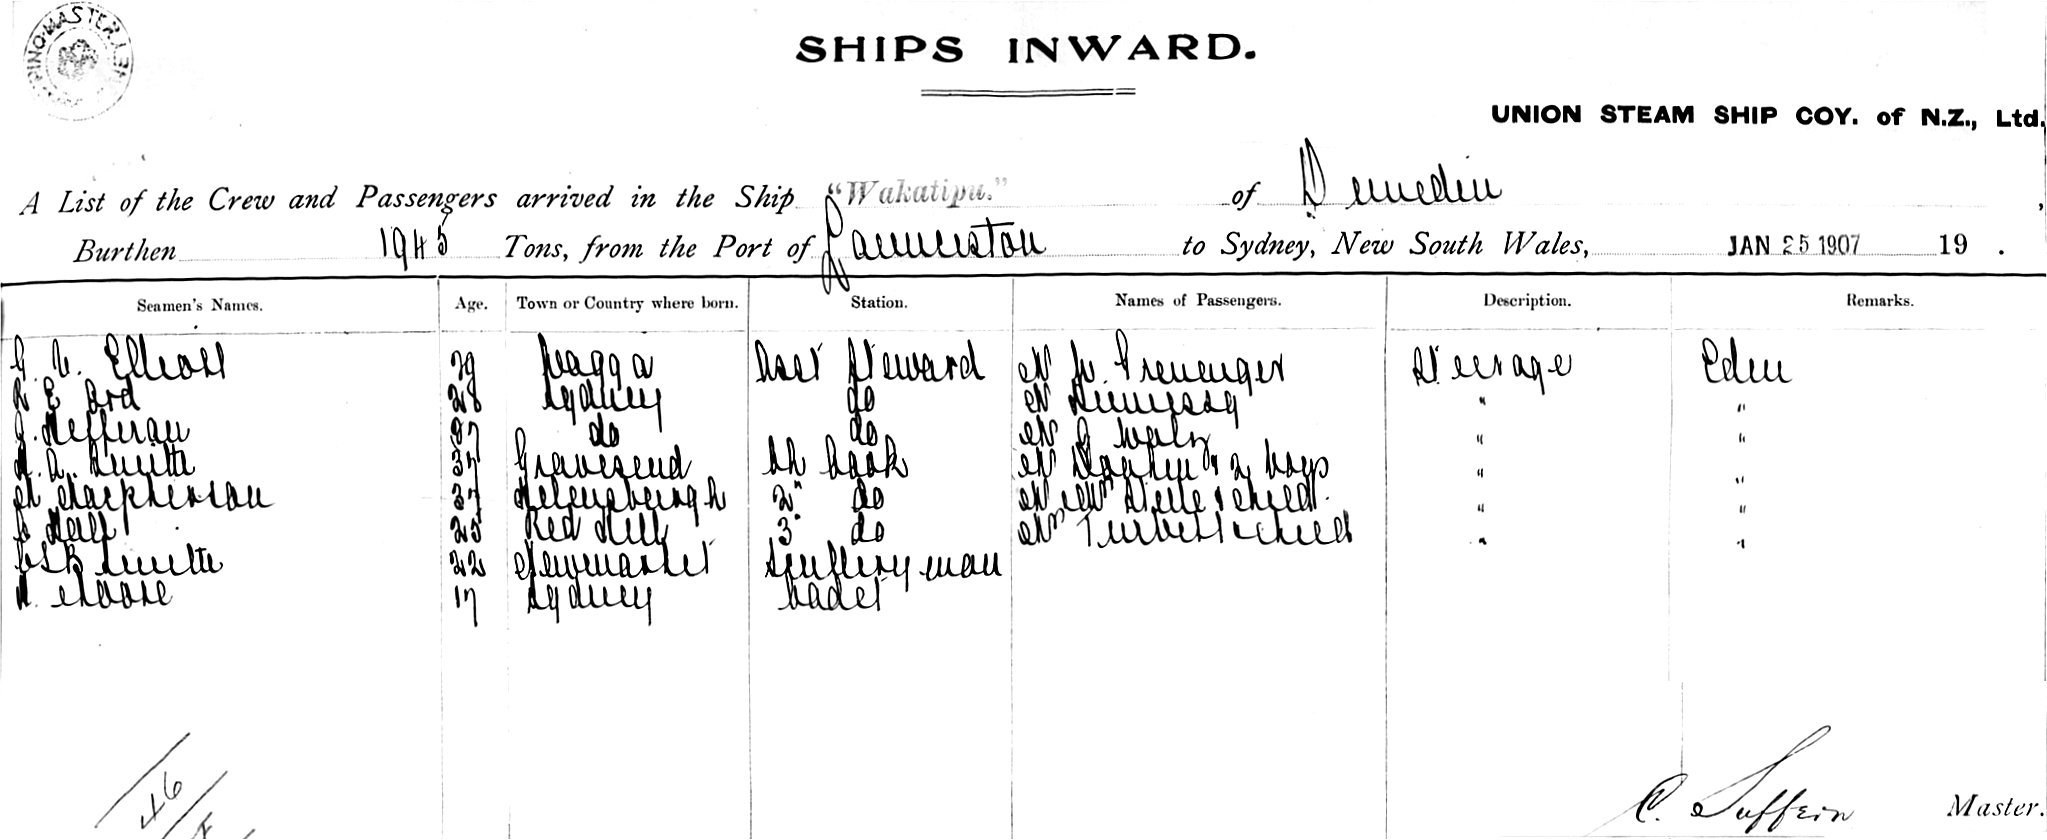 SHIPS INWARD.
UNION STEAM SHIP COY. of N.Z., Ltd.
A List of the Crew and Passengers arrived in the Ship "Wakatipu." of Dunedin,
Burthen 1945 Tons, from the Port of Launceston to Sydney, New South Wales, JAN 25 1907 19 .
Seamen's Names. Age. Town or Country where born. Station. Names of Passengers. Description. Remarks.
Elliott 29 Wagga Asst Steward Mr Steerage Eden
E Ord 28 Sydney do Mr Hennessy " "
J. Heffernan 37 do do Mr " "
A. Smith 37 Gravesend Ch Cook Mr & 2 boys " "
Macpherson 37 Helensburgh 2" do Mr & Mrs Steele & child " "
Hall 25 Red Hill 3" do Mrs & child " "
Smith 22 Newmarket Sculleryman
Moore 17 Sydney Cadet
46
C. Suffern Master.